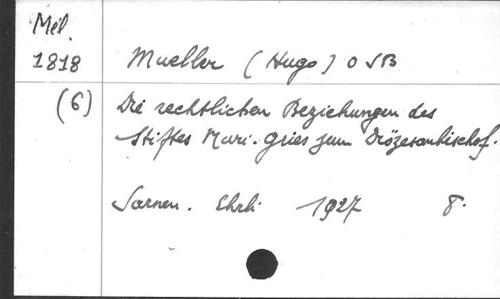 Mél.
1818 Mueller (Hugo) OSB
(6) Die rechtlichen Beziehungen des
Stiftes Muri-Gries zum Diözesanbischof.
Sarnen. Ehrli 1927 8.